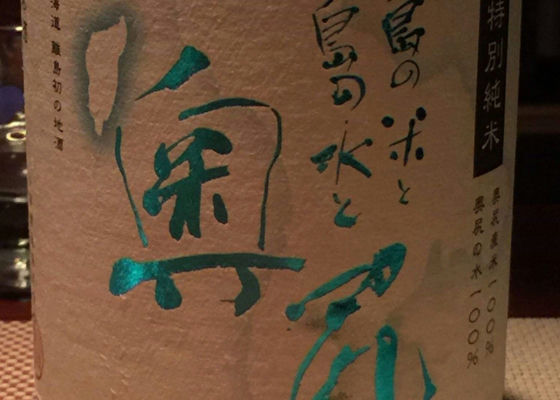 特別純米
奥尻産米一〇〇%
奥尻の水一〇〇%
島の米と
島の水と
奥尻
海道 離島初の地酒